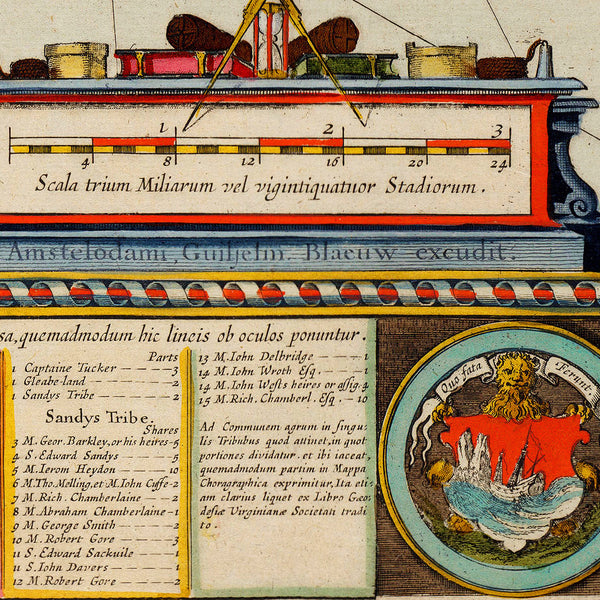 1 2 3
4 8 12 16 20 24
Scala trium Miliarum vel vigintiquatuor Stadiorum.
Amstelodami, Guiljelm. Blaeuw excudit
sa, quemadmodum hic lineis ob oculos ponuntur.
Parts
1 Captaine Tucker — 3
1 Gleabe-land — 2
1 Sandys Tribe — 2
Sandys Tribe.
Shares
3 M. Geor. Barkley, or his heires - 5
4 S. Edward Sandys — 5
5 M. Ierom Heydon — 10
6 M. Tho. Melling, et M. Iohn Cuffe - 2
7 M. Rich. Chamberlaine — 2
8 M. Abraham Chamberlaine - 1
9 M. George Smith — 2
10 M. Robert Gore — 3
11 S. Edward Sackuile — 1
11 S. Iohn Davers — 1
12 M. Robert Gore — 2
13 M. Iohn Delbridge — 1
14 M. Iohn Wroth Esq. — 1
14 M. Iohn Wests heires or assig. 4
15 M. Rich. Chamberl. Esq. - 10
Ad Communem agrum in singu-
lis Tribubus quod attinet, in quot
portiones dividatur, et ibi iaceat,
quemadmodum partim in Mappa
Choragraphica exprimitur, Ita eti-
am clarius liquet ex Libro Geo-
desiæ Virginianæ Societati tradi
to.
Quo fata Ferunt.